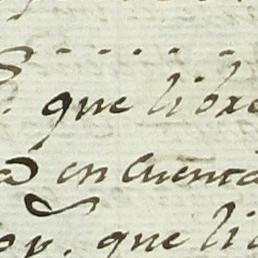 que libre
en cuenta
que li